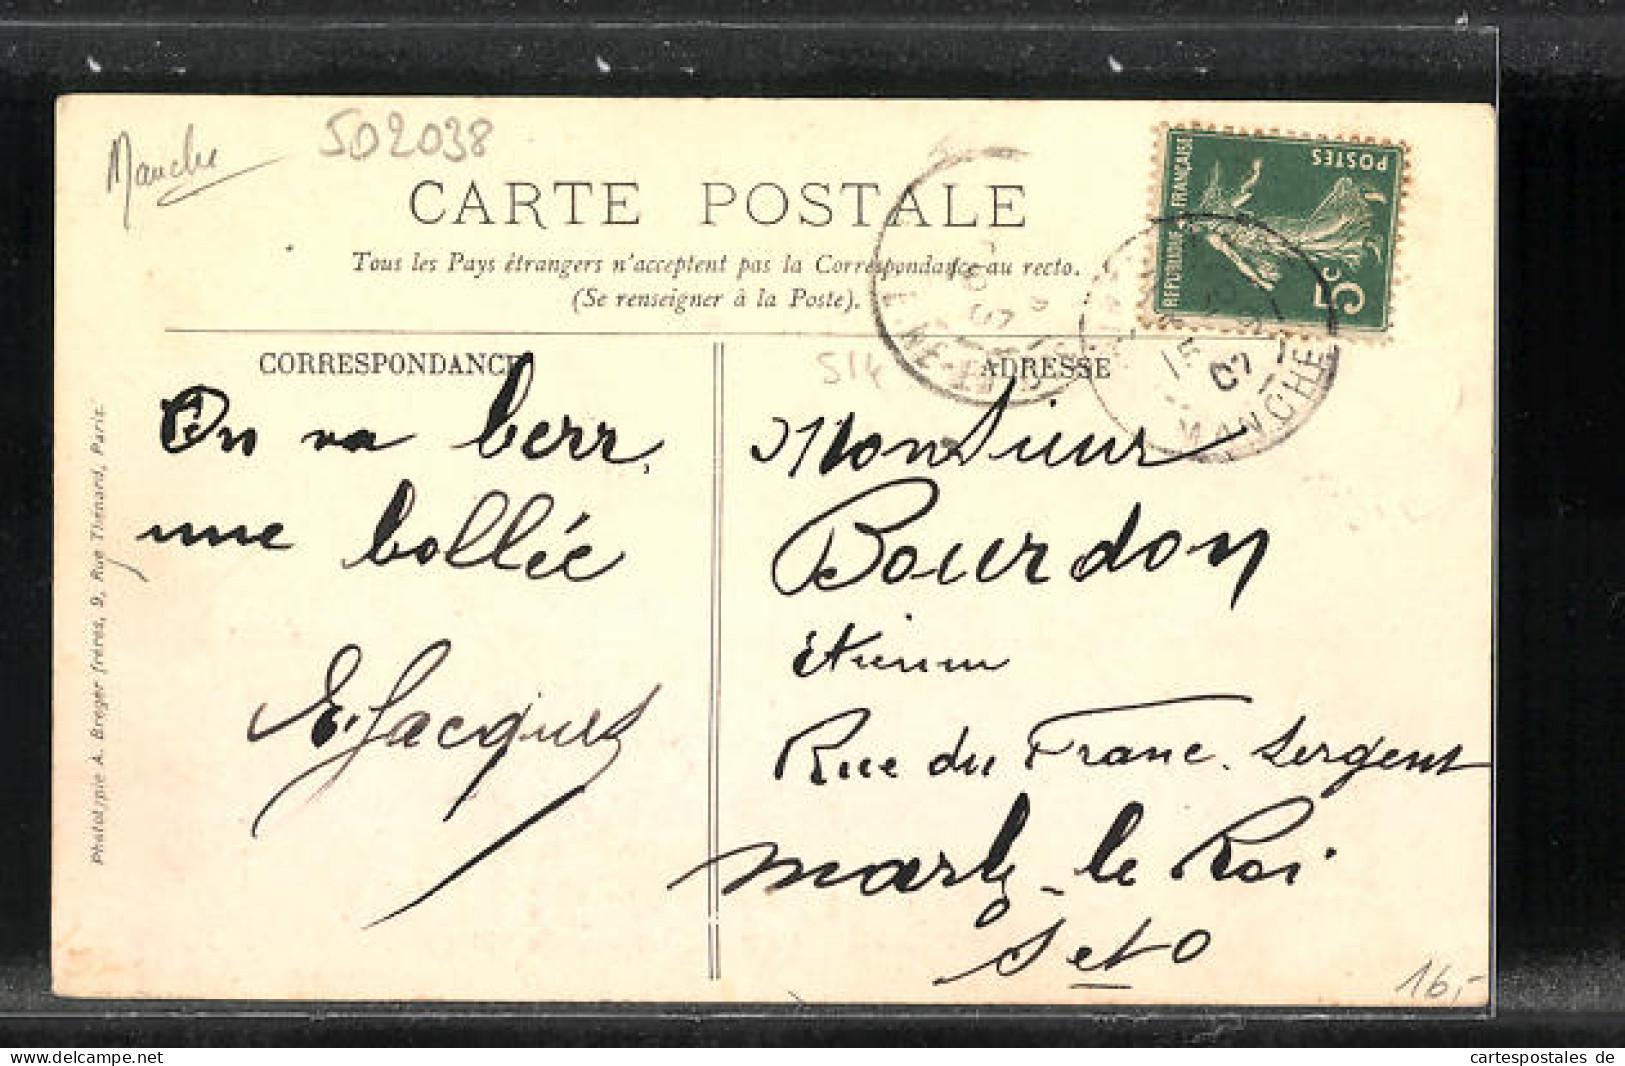 Manche
502038
CARTE POSTALE
Tous les Pays étrangers n'acceptent pas la Correspondance au recto.
(Se renseigner à la Poste).
RÉPUBLIQUE FRANÇAISE
POSTES
5c
MANCHE
07
CORRESPONDANCE
514
ADRESSE
On va berr
une bollée
E. Jacques
Monsieur
Bourdon
Rue du Franc Sergent
Marly-le Roi
Set O
16,-
Phototypie A. Breger frères, 9, Rue Thénard, Paris.
https://www.delcampe.net
cartespostales de